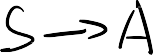 S → A